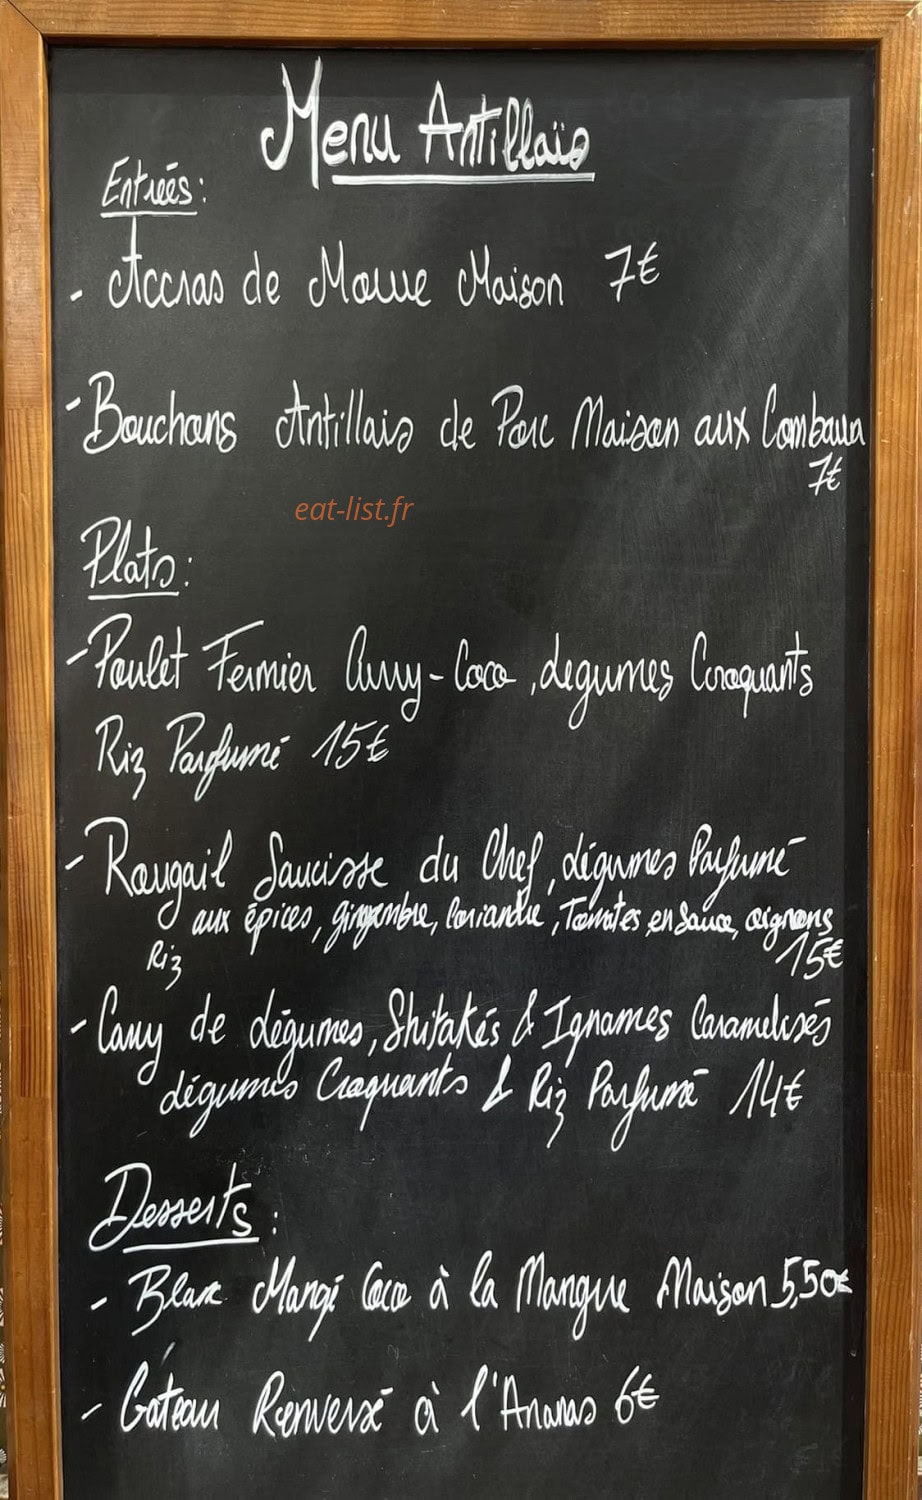 Menu Antillais
Entrées :
- Accras de Morue Maison 7€
- Bouchons Antillais de Porc Maison aux Combava
7€
eat-list.fr
Plats :
- Poulet Fermier Curry-Coco, légumes Croquants
Riz Parfumé 15€
- Rougail Saucisse du Chef, légumes Parfumé
aux épices, gingembre, Coriandre, Tomates en Sauce, oignons
Riz 15€
- Curry de légumes, Shitakés & Ignames Caramelisés
légumes Croquants & Riz Parfumé 14€
Desserts :
- Blanc Mangé Coco à la Mangue Maison 5,50€
- Gâteau Renversé à l'Ananas 6€